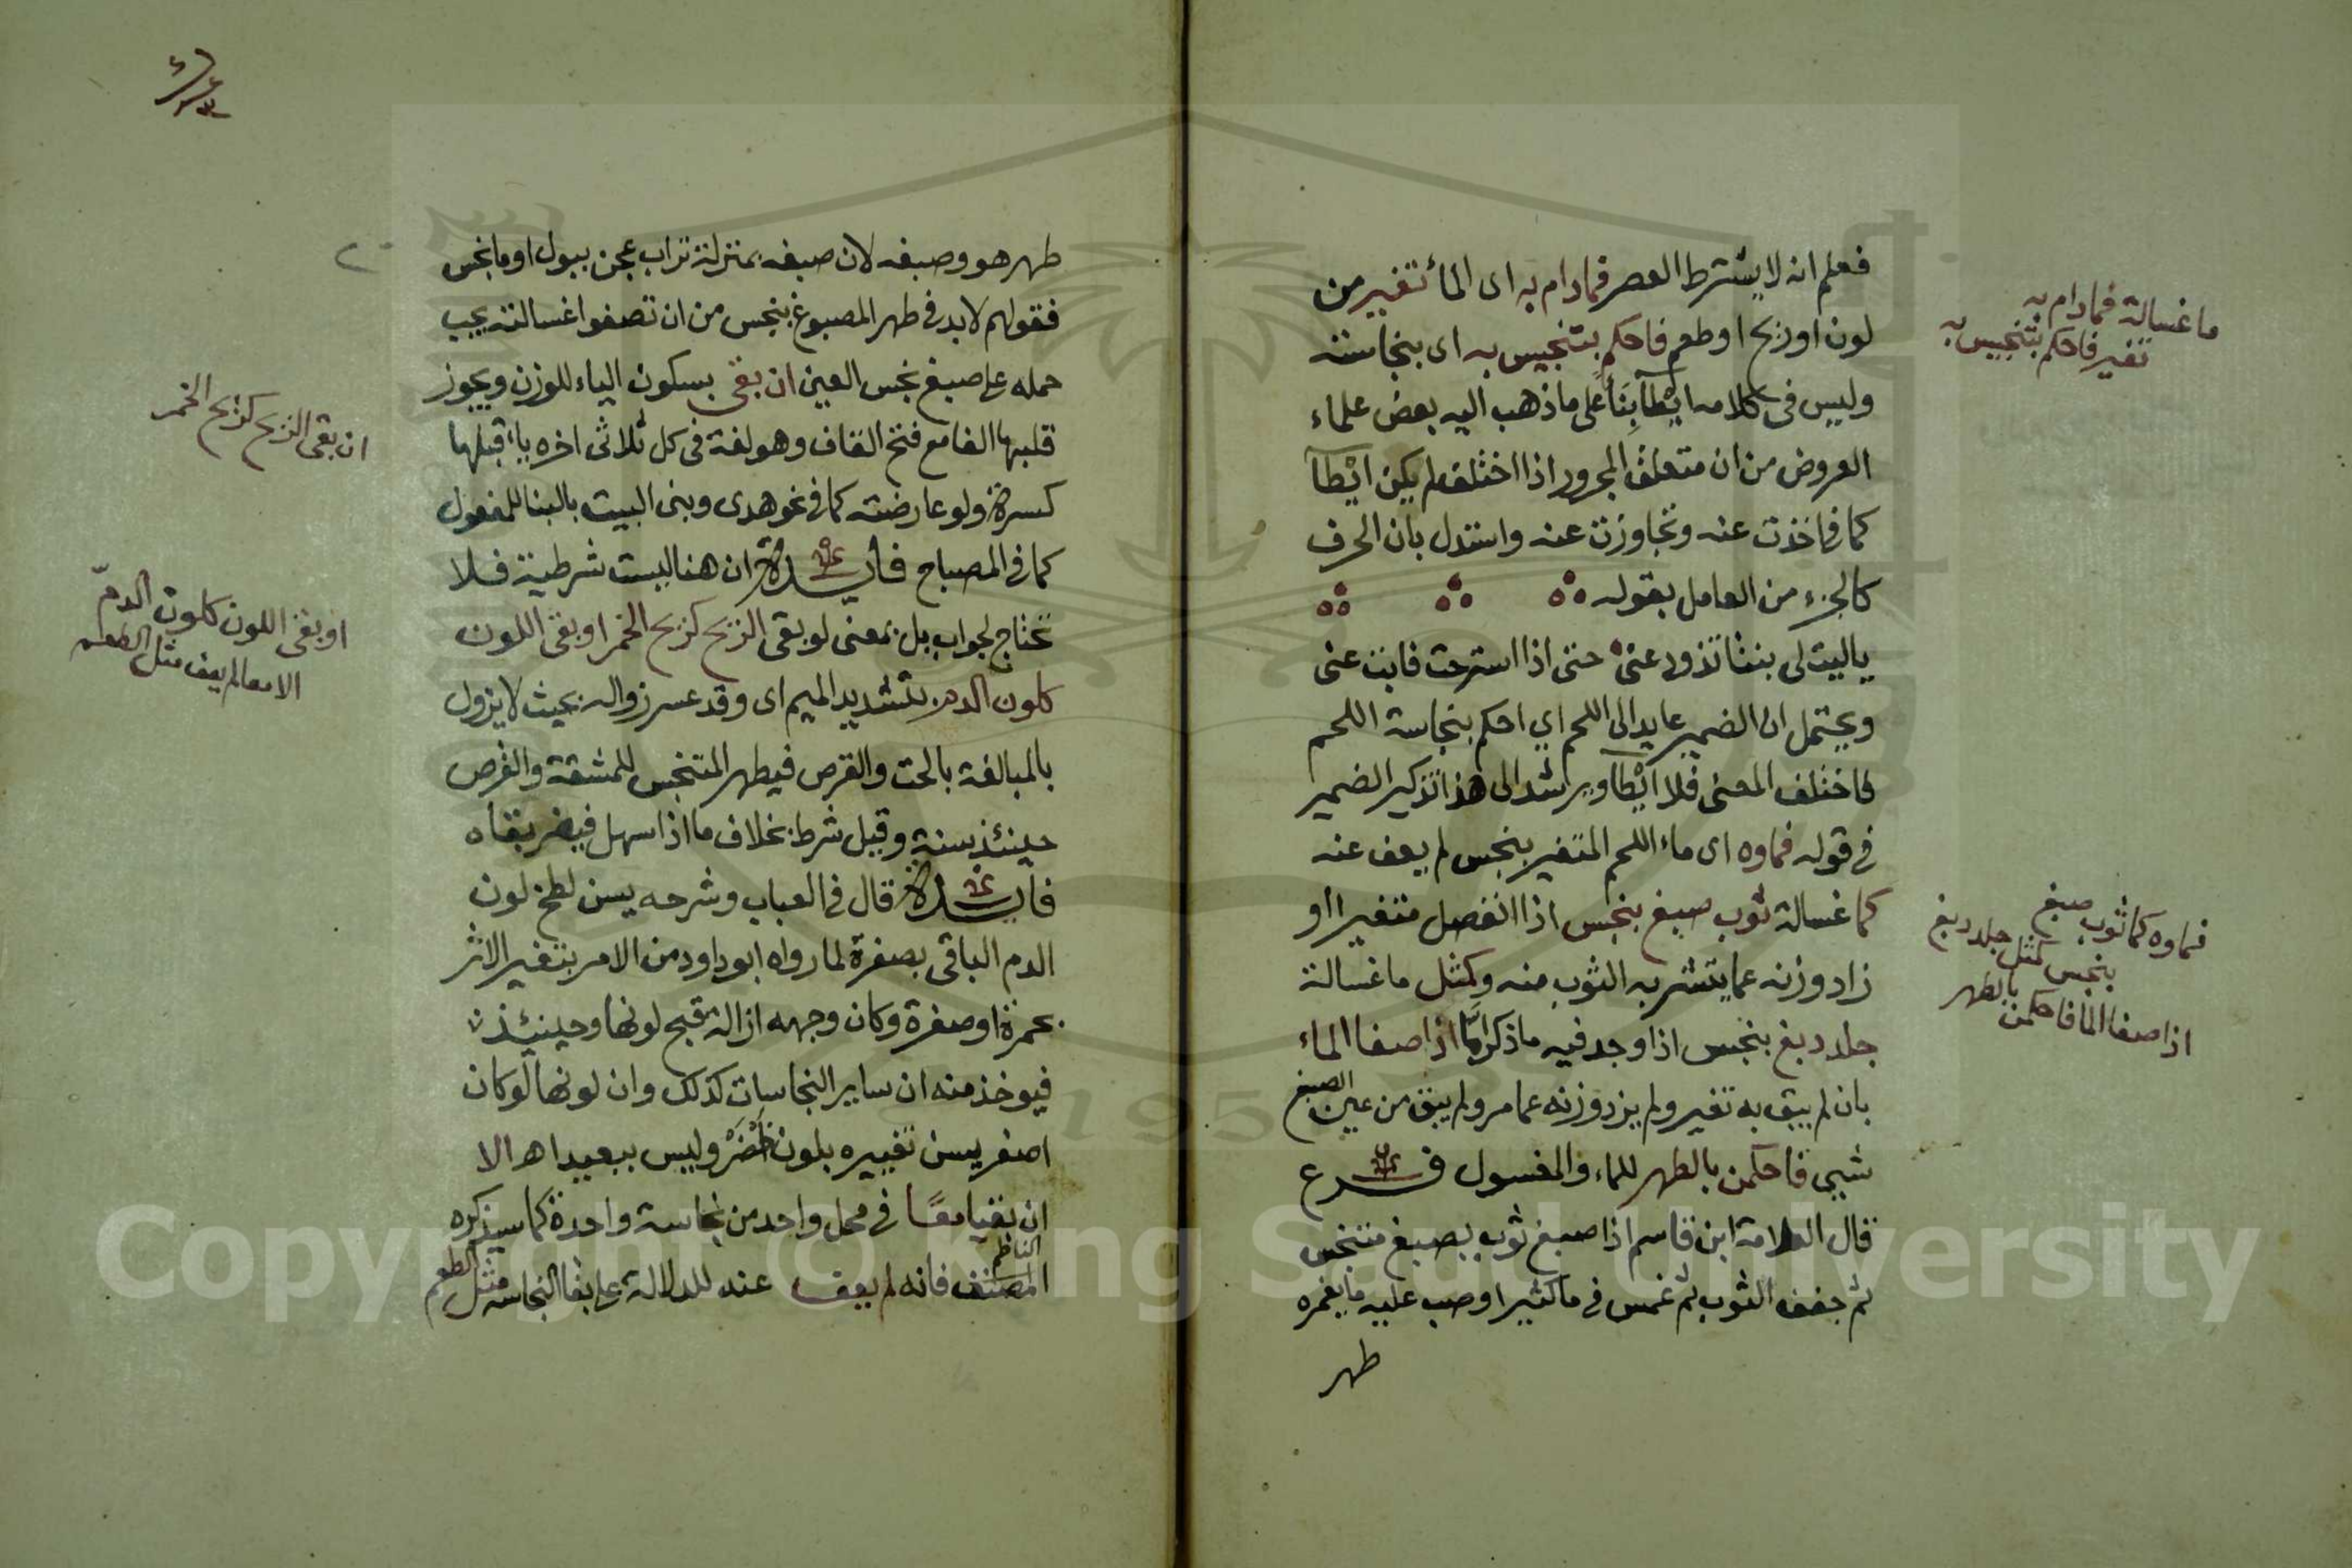 فعلم انه لا يشترط العصر فما دام به اى الماء تغيير من
لون او ريح او طعم فاحكم بتنجيس به اى بنجاسته
وليس فى كلامه ايطآ بنأ على ما ذهب اليه بعض علماء
العروض من ان متعلق المجرور اذا اختلف لم يكن ايطآ
كما فى اخذت عنه وتجاوزت عنه واستدل بان الحرف
كالجزء من العامل بقوله
ياليت لى بنتا تذود عنى حتى اذا استرحت فابنت عنى
ويحتمل ان الضمير عايد الى اللحم اي احكم بنجاسة اللحم
فاختلف المعنى فلا ايطآ ويرشد الى هذا تذكير الضمير
فى قوله فماوه اى ماء اللحم المتغير بنجس لم يعف عنه
كما غسالة ثوب صبغ بنجس اذا انفصل متغيرا او
زاد وزنه عما يتشربه الثوب منه وكمثل ما غسالة
جلد دبغ بنجس اذا وجد فيه ما ذكر امّا اذا صفا الماء
بان لم يبق به تغير ولم يزد وزنه عما مر ولم يبق من عين الصبغ
شيى فاحكمن بالطهر للماء والمغسول فرع
قال العلامة ابن قاسم اذا صبغ ثوب بصبغ متنجس
ثم جفف الثوب ثم غمس فى ما كثير او صب عليه ما يغمره
طهر
ما غسالة فما دام به
تغير فاحكم بتنجيس به
فماوه كما ثوب صبغ
بنجس كمثل جلد دبغ
اذا صفا الما فاحكمن بالطهر
طهر هو وصبغه لان صبغه بمنزلة تراب عجن ببول او ما نجس
فقولهم لا بد فى طهر المصبوغ بنجس من ان تصفوا غسالته يجب
حمله على صبغ نجس العين ان بقى بسكون الياء للوزن ويجوز
قلبها الفا مع فتح القاف وهو لغة فى كل ثلاثى اخره ياء قبلها
كسرة ولو عارضته كما فى نحو هدى وبنى البيت بالبنا للمفعول
كما فى المصباح فايدة ان هنا ليست شرطية فلا
تحتاج لجواب بل بمعنى لو بقى الريح كريح الخمر او بقى اللون
كلون الدم بتشديد الميم اى وقد عسر زواله بحيث لا يزول
بالمبالغة بالحت والقرص فيطهر المتنجس للمشقة والقرص
حينئذ سنة وقيل شرط بخلاف ما اذا سهل فيضر بقاه
فايدة قال فى العباب وشرحه يسن لطخ لون
الدم الباقى بصفرة لما رواه ابو داود من الامر بتغير الاثر
بحمرة او صفرة وكان وجهه ازالة قبح لونها وحينئذ
فيوخذ منه ان ساير النجاسات كذلك وان لونها لو كان
اصفر يسن تغييره بلون اخضر وليس ببعيد اهـ الا
ان بقيا معًا فى محل واحد من نجاسة واحدة كما سيذكره
المصنف الناظم فانه لم يعف عنه للدلالة على بقا النجاسة مثل الطعم
ان بقى الريح كريح الخمر
او بقى اللون كلون الدمّ
الا معا لم يعف مثل الطعم
٢٠